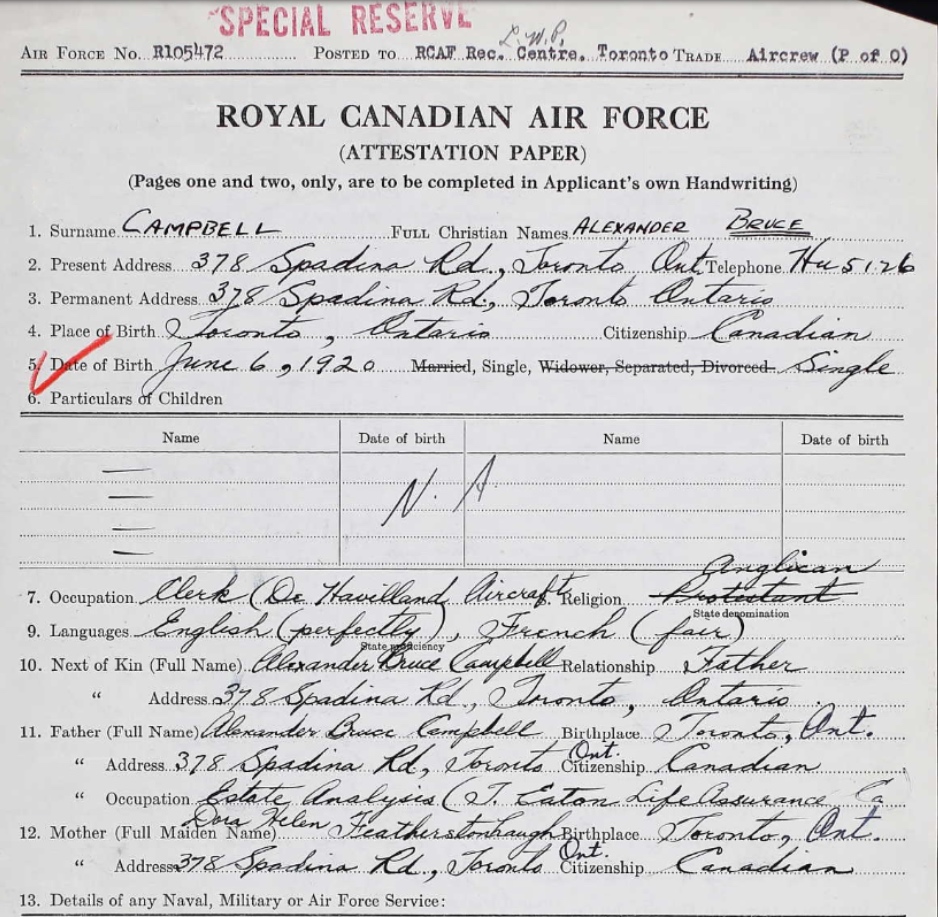 SPECIAL RESERVE
L.W.P.
AIR FORCE NO. R105472 POSTED TO RCAF Rec. Centre. Toronto TRADE Aircrew (P or O)
ROYAL CANADIAN AIR FORCE
(ATTESTATION PAPER)
(Pages one and two, only, are to be completed in Applicant's own Handwriting)
1. Surname CAMPBELL FULL Christian Names ALEXANDER BRUCE
2. Present Address 378 Spadina Rd., Toronto Ont. Telephone Hu 5126
3. Permanent Address 378 Spadina Rd., Toronto Ontario
4. Place of Birth Toronto, Ontario Citizenship Canadian
5. Date of Birth June 6, 1920 Married, Single, Widower, Separated, Divorced Single
6. Particulars of Children
Name Date of birth Name Date of birth
N. A
Anglican
7. Occupation Clerk (De Havilland Aircraft 8. Religion Protestant
State denomination
9. Languages English (perfectly), French (fair)
State proficiency
10. Next of Kin (Full Name) Alexander Bruce Campbell Relationship Father
" Address 378 Spadina Rd., Toronto, Ontario.
11. Father (Full Name) Alexander Bruce Campbell Birthplace Toronto, Ont.
" Address 378 Spadina Rd, Toronto Ont. Citizenship Canadian
" Occupation Estate Analysis (T. Eaton Life Assurance Co
12. Mother (Full Maiden Name) Dora Helen Featherstonhaugh Birthplace Toronto, Ont.
" Address 378 Spadina Rd., Toronto Ont. Citizenship Canadian
13. Details of any Naval, Military or Air Force Service: